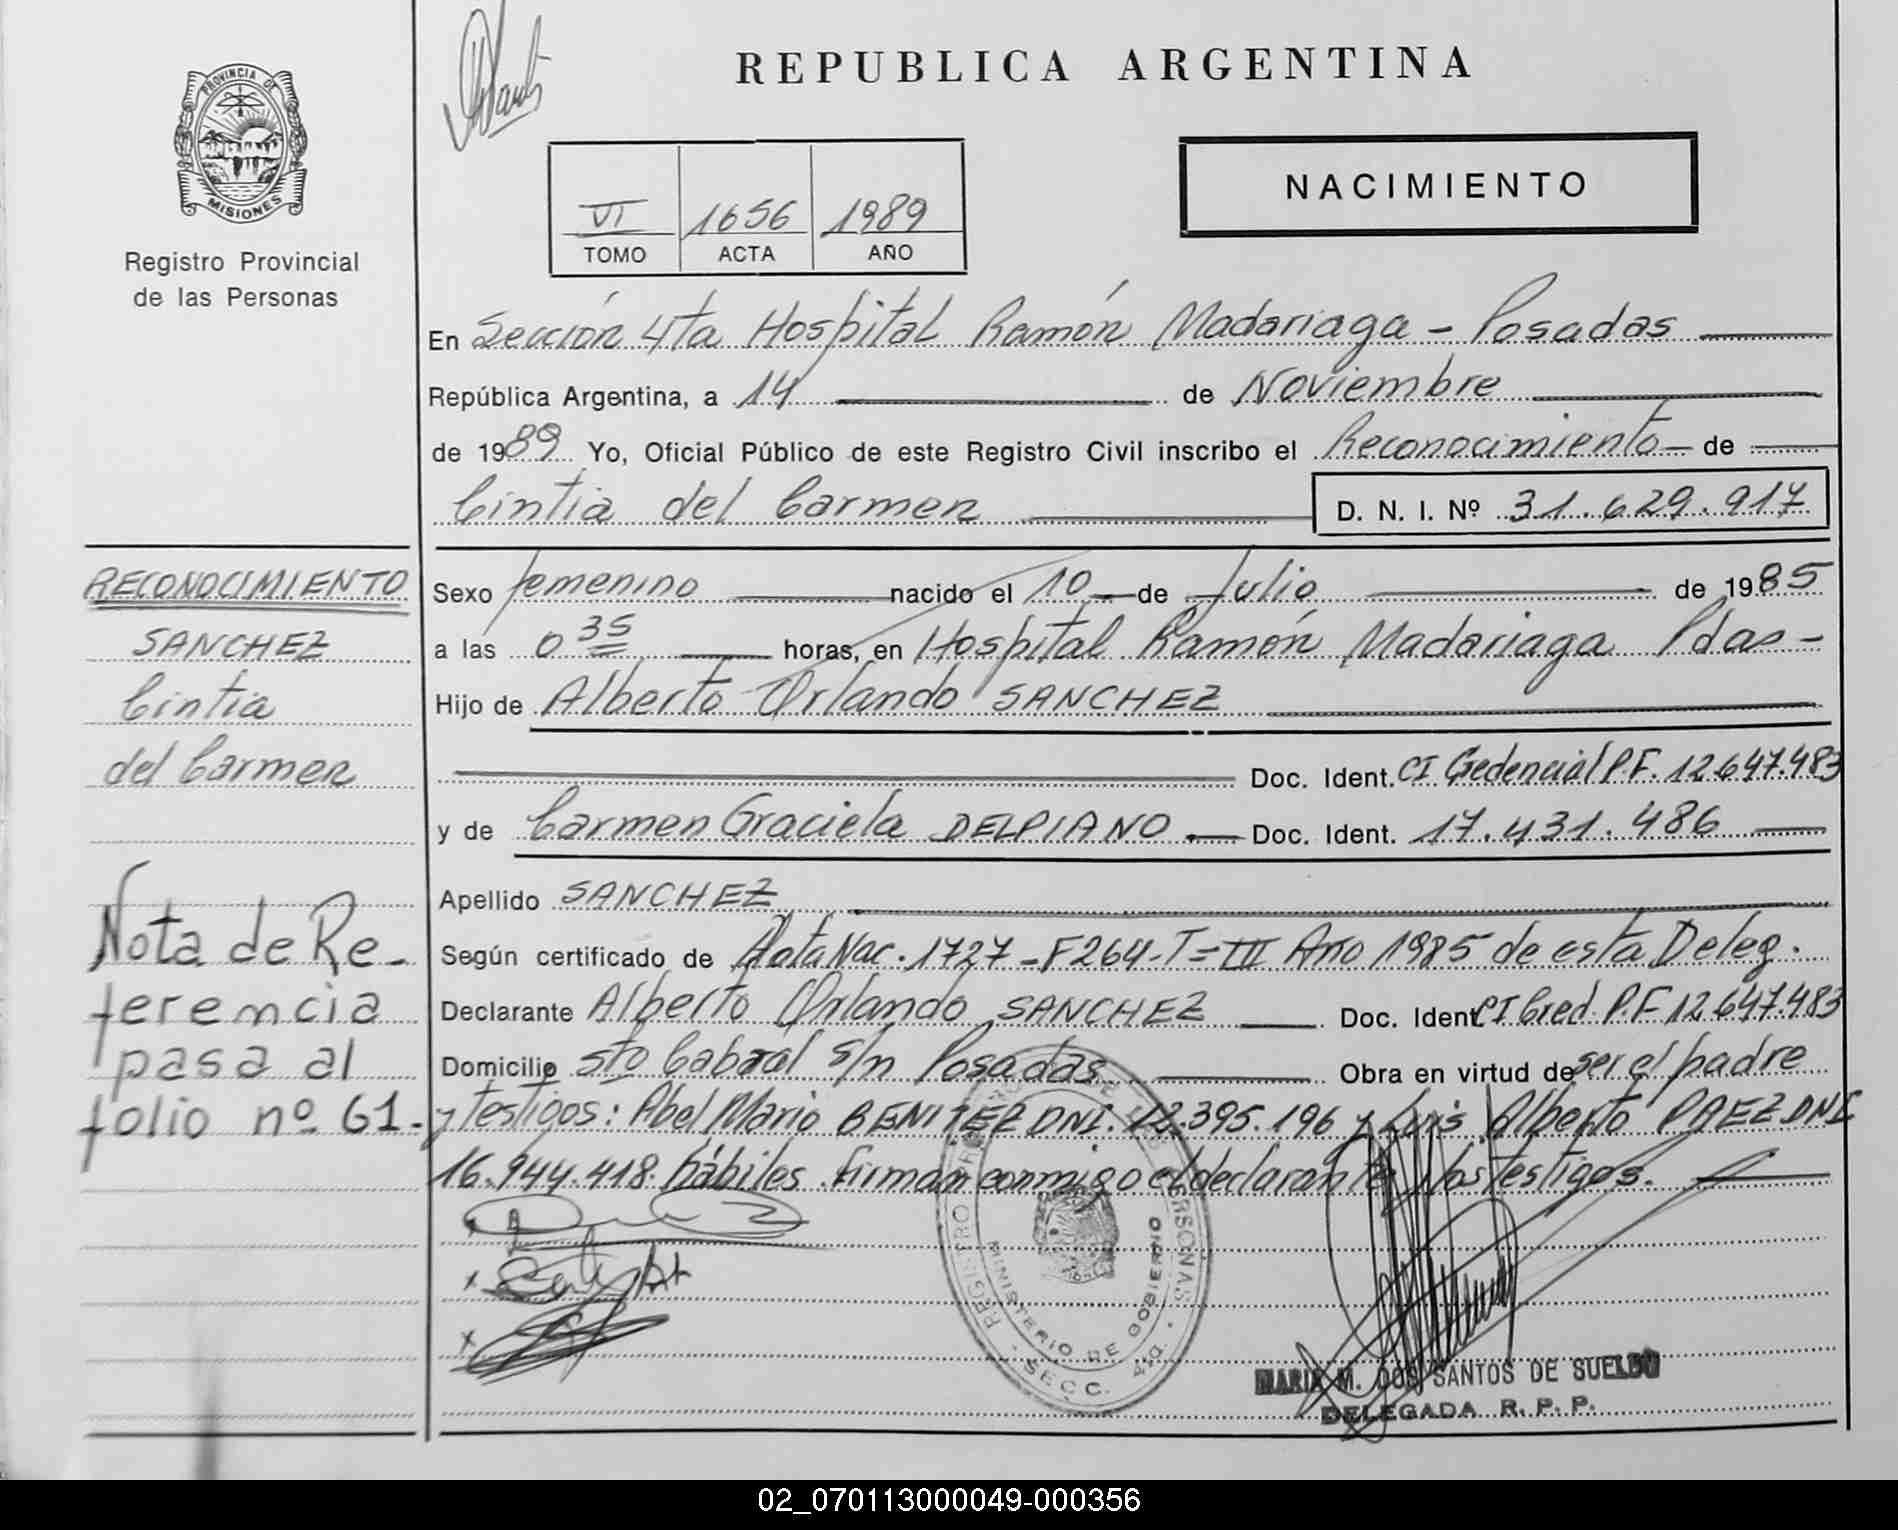 REPUBLICA ARGENTINA
PROVINCIA DE
MISIONES
Registro Provincial
de las Personas
VI 1656 1989
TOMO ACTA AÑO
NACIMIENTO
En Sección 4ta Hospital Ramón Madariaga - Posadas
República Argentina, a 14 de Noviembre
de 1989 Yo, Oficial Público de este Registro Civil inscribo el Reconocimiento de
Cintia del Carmen D. N. I. Nº 31.629.917
RECONOCIMIENTO
SANCHEZ
Cintia
del Carmen
Nota de Re-
ferencia
pasa al
folio nº 61.-
Sexo femenino nacido el 10 de Julio de 1985
a las 0 35 horas, en Hospital Ramón Madariaga Pdas-
Hijo de Alberto Orlando SANCHEZ
Doc. Ident. CI Credencial P.F. 12.647.483
y de Carmen Graciela DELPIANO Doc. Ident. 17.431.486
Apellido SANCHEZ
Según certificado de Acta Nac. 1727-F264-T=III Año 1985 de esta Deleg.
Declarante Alberto Orlando SANCHEZ Doc. Ident CI Cred. P.F 12.647.483
Domicilio Sto Cabral s/n Posadas Obra en virtud de ser el padre
y testigos: Abel Mario BENITEZ DNI. 12.395.196 y Luis Alberto PAEZ DNI
16.944.418. hábiles. Firman conmigo el declarante y los testigos.
REGISTRO PERSONAS
MINISTERIO DE GOBIERNO
SECC. 4ta
MARIA M. DOS SANTOS DE SUELDO
DELEGADA R. P. P.
02_070113000049-000356